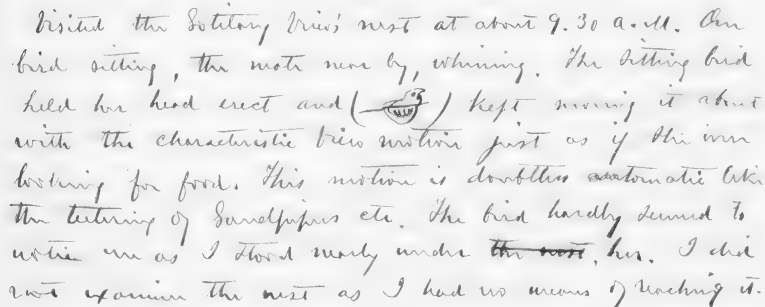 Visited the Solitary Vireo's nest at about 9.30 A.M. One
bird sitting, the mate near by, whining. The sitting bird
held her head erect and ( ) kept moving it about
with the characteristic Vireo motion just as if she were
looking for food. This motion is doubtless automatic like
the teetering of Sandpipers etc. The bird hardly seemed to
notice me as I stood nearly under the nest, her. I did
not examine the nest as I had no means of reaching it.